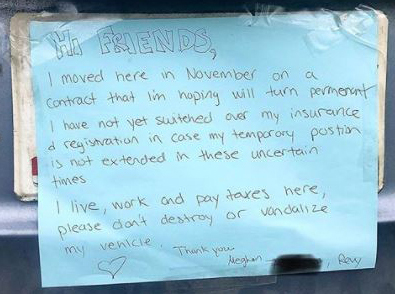 Hi FRIENDS,
I moved here in November on a
contract that I'm hoping will turn permenent
I have not yet switched over my insurance
& registration in case my temporary postion
is not extended in these uncertain
times
I live, work and pay taxes here,
please don't destroy or vandalize
my vehicle. Thank you
Meghan , Revy